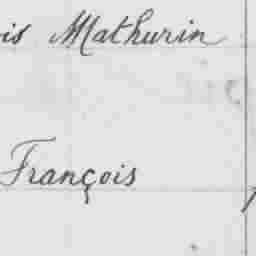 is Mathurin
François